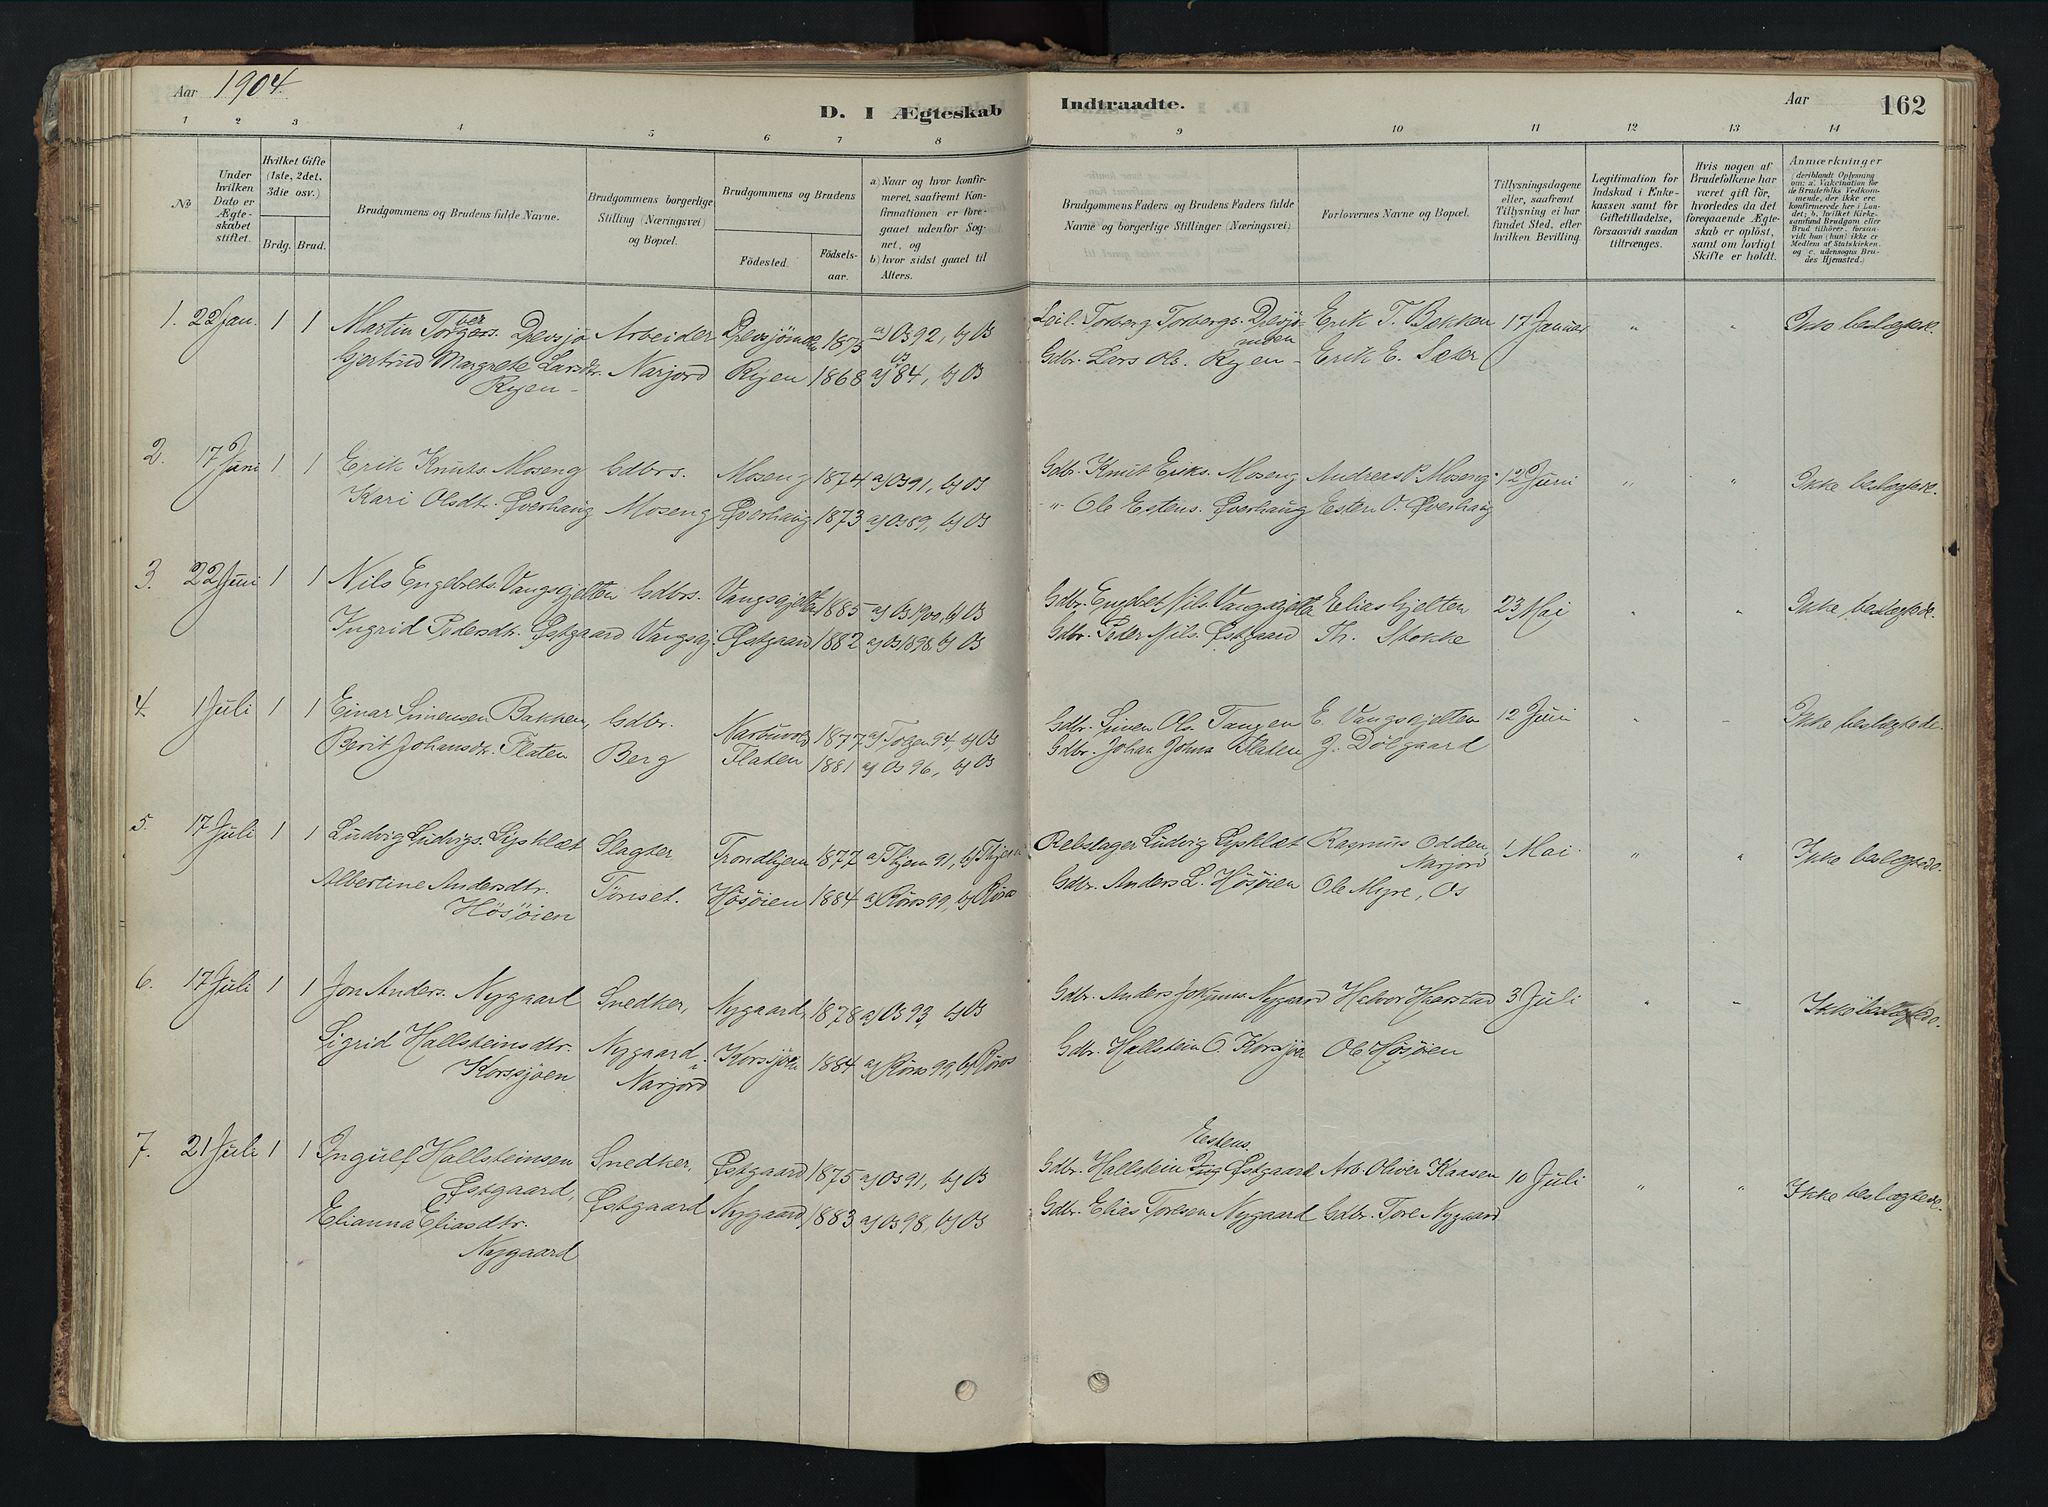 Aar 1904.
D. I Ægteskab Indtraadte.
Aar 162
1 2 3 4 5 6 7 8 9 10 11 12 13 14
No
Under hvilken Dato er Ægteskabet stiftet.
Hvilket Gifte (1ste, 2det, 3die osv.)
Brdg. Brud.
Brudgommens og Brudens fulde Navne.
Brudgommens borgerlige Stilling (Næringsvei) og Bopæl.
Brudgommens og Brudens
Födested. Födselsaar.
a) Naar og hvor konfirmeret, saafremt Konfirmationen er foregaaet udenfor Sognet, og
b) hvor sidst gaaet til Alters.
Brudgommens Faders og Brudens Faders fulde Navne og borgerlige Stillinger (Næringsvei)
Forlovernes Navne og Bopæl.
Tillysningsdagene eller, saafremt Tillysning ei har fundet Sted, efter hvilken Bevilling.
Legitimation for Indskud i Enkekassen samt for Giftetilladelse, forsaavidt saadan tiltrænges.
Hvis nogen af Brudefolkene har været gift för, hvorledes da det foregaaende Ægteskab er oplöst, samt om lovligt Skifte er holdt.
Anmærkninger (deriblandt Oplysning om: a. Vakcination for de Brudefolks Vedkommende, der ikke ere konfirmerede her i Landet; b. hvilket Kirkesamfund Brudgom eller Brud tilhörer, forsaavidt hun (hun) ikke er Medlem af Statskirken, og c. udensogns Brudes Hjemsted.)
1. 22 Jan. 1 1 Martin Torbers. Devsjø Arbeider Devsjømoen 1873 a) Os 92, b) Os Lil. Torberg Torbergs. Devsjømoen Erik T. Bekken 17 Januar " " Ikke beslegtede.
Gertrud Margrete Larsdtr. Ryen Narjord Ryen 1868 a) Os 84, b) Os Gdbr. Lars Ols. Ryen Erik E. Sæter
2. 17 Juni 1 1 Erik Knuts. Moseng Gdbrs. Moseng 1874 a) Os 91, b) Os Gdbr. Knut Eriks. Moseng Andreas P. Moseng 12 Juni " " Ikke beslegtede.
Kari Olsdtr. Øverhaug Moseng Øverhaug 1873 a) Os 89, b) Os " Ole Estens. Øverhaug Esten O. Øverhaug
3. 22 Juni 1 1 Nils Engebrets. Vangsgjelten Gdbrs. Vangsgjelten 1885 a) Os 1900, b) Os Gdbr. Engebret Nils. Vangsgjelten Elias Gjelten 23 Mai " " Ikke beslegtede.
Ingrid Pedersdtr. Østgaard Vangsgj. Østgaard 1882 a) Os 1898, b) Os Gdbr. Peder Nils. Østgaard Th. Stokke
4. 1 Juli 1 1 Einar Simensen Bakken, Gdbr. Narbuvold 1877 a) Tolgen 94, b) Os Gdbr. Simen Ols. Tangen E. Vangsgjelten 12 Juni " " Ikke beslegtede.
Berit Johansdtr. Flaten Berg Flaten 1881 a) Os 96, b) Os Gdbr. Johan Johns Flaten J. Dölgaard
5. 17 Juli 1 1 Ludvig Ludvigs. Lysklæt Slagter Trondhjem 1877 a) Thjem 91, b) Thjem Rebslager Ludvig Lysklæt Rasmus Odden, Narjord 1 Mai " " Ikke beslegtede.
Albertine Andersdtr. Høsøien Tönset. Høsøien 1884 a) Røros 99, b) Røros Gdbr. Anders L. Høsøien Ole Myre, Os
6. 17 Juli 1 1 Jon Anders. Nygaard Snedker, Nygaard, 1878 a) Os 93, b) Os Gdbr. Anders Johanns Nygaard Halvor Haarstad 3 Juli " " Ikke beslegtede.
Sigrid Hallsteinsdtr. Korssjøen Nygaard i Narjord Korssjøen 1884 a) Røros 99, b) Røros Gdbr. Hallstein O. Korssjøen Ole Høsøien
7. 21 Juli 1 1 Ingulf Hallsteinsen Østgaard, Snedker. Østgaard 1875 a) Os 91, b) Os Gdbr. Hallstein Estens Østgaard Arb. Oliver Kaasen 10 Juli " " Ikke beslægtede.
Elianna Eliasdtr. Nygaard Østgaard Nygaard 1883 a) Os 98, b) Os Gdbr. Elias Toresen Nygaard Gdbr. Tore Nygaard